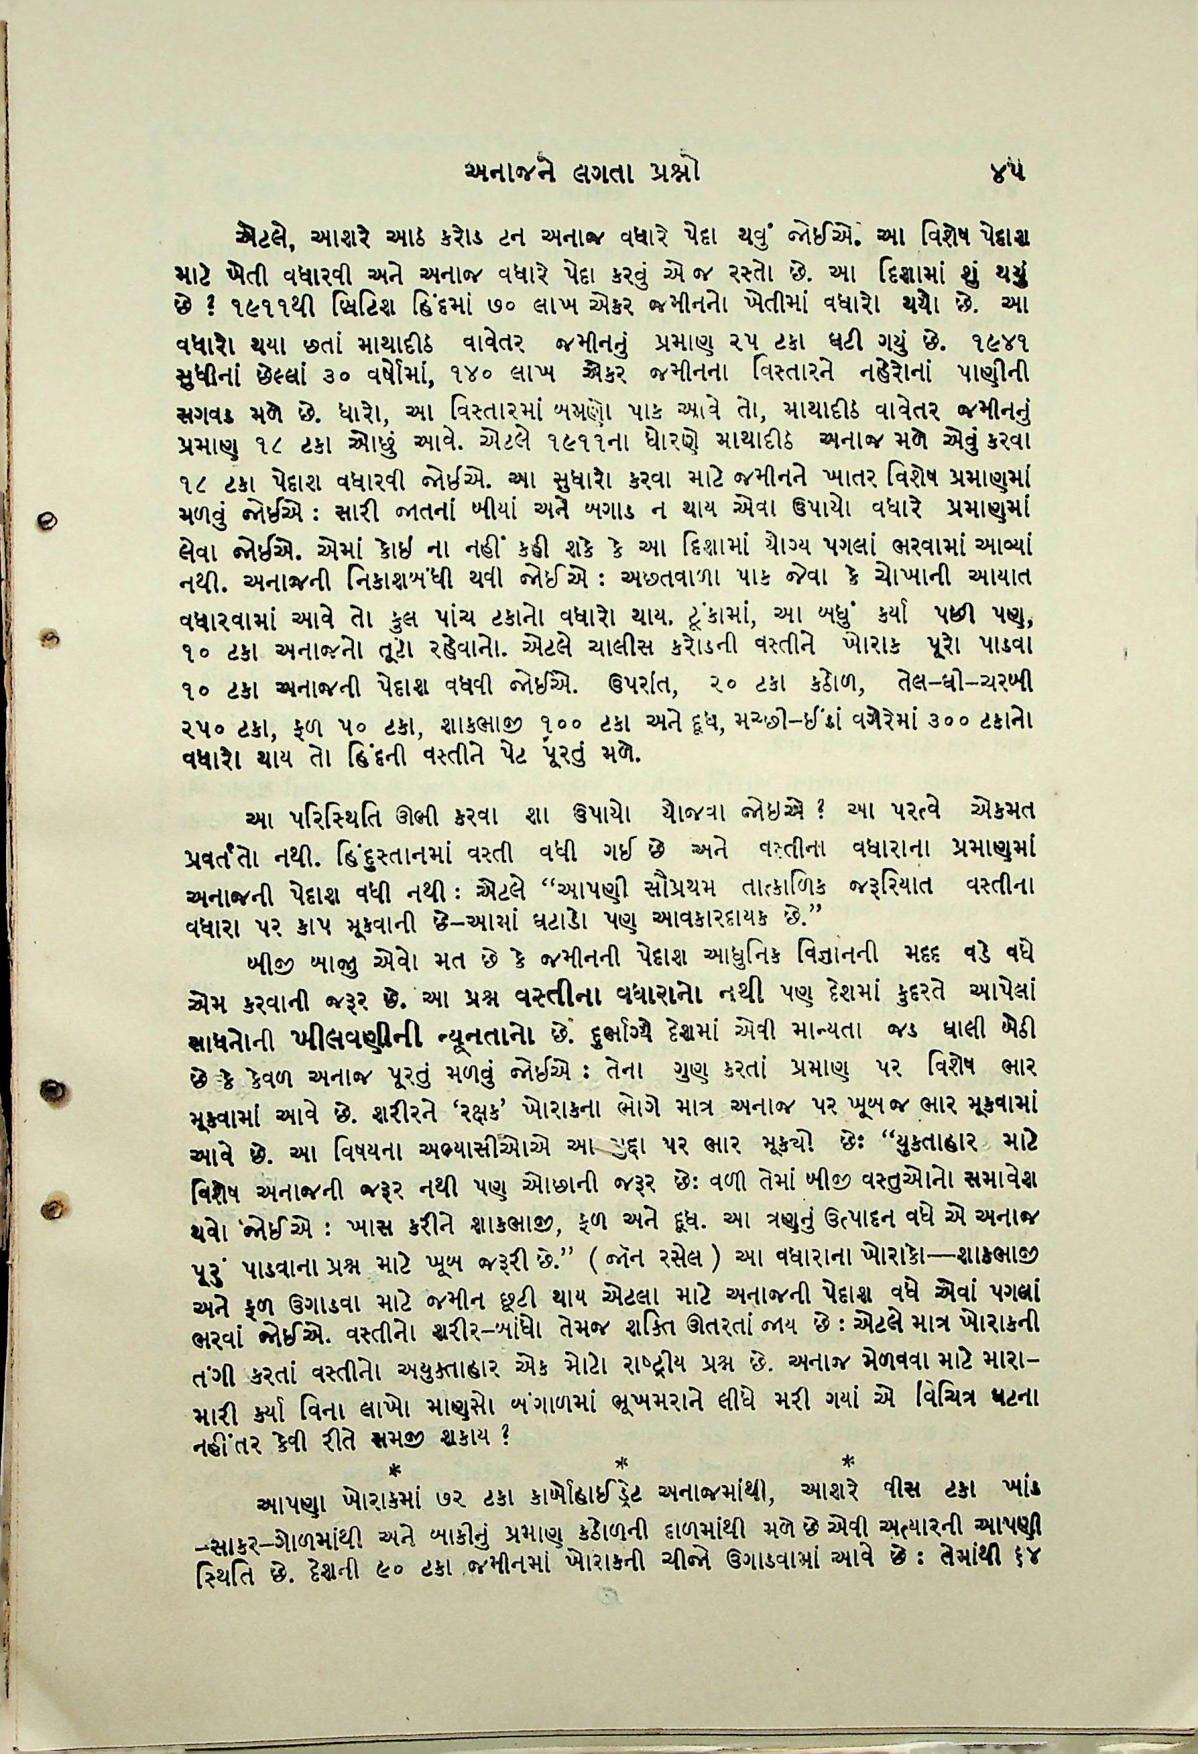 અનાજને લગતા પ્રશ્નો ૪૫
એટલે, આશરે આઠ કરોડ ટન અનાજ વધારે પેદા થવું જોઈએ. આ વિશેષ પેદાશ
માટે ખેતી વધારવી અને અનાજ વધારે પેદા કરવું એ જ રસ્તો છે. આ દિશામાં શું થયું
છે ? ૧૯૧૧થી બ્રિટિશ હિંદમાં ૭૦ લાખ એકર જમીનનો ખેતીમાં વધારો થયો છે. આ
વધારો થયા છતાં માથાદીઠ વાવેતર જમીનનું પ્રમાણ ૨૫ ટકા ઘટી ગયું છે. ૧૯૪૧
સુધીનાં છેલ્લાં ૩૦ વર્ષોમાં, ૧૪૦ લાખ એકર જમીનના વિસ્તારને નહેરોનાં પાણીની
સગવડ મળે છે. ધારો, આ વિસ્તારમાં બમણો પાક આવે તો, માથાદીઠ વાવેતર જમીનનું
પ્રમાણ ૧૮ ટકા ઓછું આવે. એટલે ૧૯૧૧ના ધોરણે માથાદીઠ અનાજ મળે એવું કરવા
૧૮ ટકા પેદાશ વધારવી જોઇએ. આ સુધારો કરવા માટે જમીનને ખાતર વિશેષ પ્રમાણમાં
મળવું જોઇએ : સારી જાતનાં બીયાં અને બગાડ ન થાય એવા ઉપાયો વધારે પ્રમાણમાં
લેવા જોઇએ. એમાં કોઇ ના નહીં કહી શકે કે આ દિશામાં યોગ્ય પગલાં ભરવામાં આવ્યાં
નથી. અનાજની નિકાશબંધી થવી જોઈએ : અછતવાળા પાક જેવા કે ચોખાની આયાત
વધારવામાં આવે તો કુલ પાંચ ટકાનો વધારો થાય. ટૂંકામાં, આ બધું કર્યા પછી પણ,
૧૦ ટકા અનાજનો તૂટો રહેવાનો. એટલે ચાલીસ કરોડની વસ્તીને ખોરાક પૂરો પાડવા
૧૦ ટકા અનાજની પેદાશ વધવી જોઈએ. ઉપરાંત, ૨૦ ટકા કઠોળ, તેલ-ઘી-ચરબી
૨૫૦ ટકા, ફળ ૫૦ ટકા, શાકભાજી ૧૦૦ ટકા અને દૂધ, મચ્છી-ઈંડાં વગેરેમાં ૩૦૦ ટકાનો
વધારો થાય તો હિંદની વસ્તીને પેટ પૂરતું મળે.
આ પરિસ્થિતિ ઊભી કરવા શા ઉપાયો યોજવા જોઇએ ? આ પરત્વે એકમત
પ્રવર્તતો નથી. હિંદુસ્તાનમાં વસ્તી વધી ગઇ છે અને વસ્તીના વધારાના પ્રમાણમાં
અનાજની પેદાશ વધી નથી : એટલે “આપણી સૌપ્રથમ તાત્કાળિક જરૂરિયાત વસ્તીના
વધારા પર કાપ મૂકવાની છે-આમાં ઘટાડો પણ આવકારદાયક છે.”
બીજી બાજુ એવો મત છે કે જમીનની પેદાશ આધુનિક વિજ્ઞાનની મદદ વડે વધે
એમ કરવાની જરૂર છે. આ પ્રશ્ન વસ્તીના વધારાનો નથી પણ દેશમાં કુદરતે આપેલાં
સાધનોની ખીલવણીની ન્યૂનતાનો છે. દુર્ભાગ્યે દેશમાં એવી માન્યતા જડ ઘાલી બેઠી
છે કે કેવળ અનાજ પૂરતું મળવું જોઇએ : તેના ગુણ કરતાં પ્રમાણ પર વિશેષ ભાર
મૂકવામાં આવે છે. શરીરને ‘રક્ષક’ ખોરાકના ભોગે માત્ર અનાજ પર ખૂબ જ ભાર મૂકવામાં
આવે છે. આ વિષયના અભ્યાસીઓએ આ મુદ્દા પર ભાર મૂક્યો છેઃ “યુક્તાહાર માટે
વિશેષ અનાજની જરૂર નથી પણ ઓછાની જરૂર છેઃ વળી તેમાં બીજી વસ્તુઓનો સમાવેશ
થવો જોઈએ : ખાસ કરીને શાકભાજી, ફળ અને દૂધ. આ ત્રણનું ઉત્પાદન વધે એ અનાજ
પૂરું પાડવાના પ્રશ્ન માટે ખૂબ જરૂરી છે.” ( જૉન રસેલ ) આ વધારાના ખોરાકો—શાકભાજી
અને ફળ ઉગાડવા માટે જમીન છૂટી થાય એટલા માટે અનાજની પેદાશ વધે એવાં પગલાં
ભરવાં જોઈએ. વસ્તીનો શરીર-બાંધો તેમજ શક્તિ ઊતરતાં જાય છે : એટલે માત્ર ખોરાકની
તંગી કરતાં વસ્તીનો અયુક્તાહાર એક મોટો રાષ્ટ્રીય પ્રશ્ન છે. અનાજ મેળવવા માટે મારા-
મારી કર્યા વિના લાખો માણસો બંગાળમાં ભૂખમરાને લીધે મરી ગયાં એ વિચિત્ર ઘટના
નહીંતર કેવી રીતે સમજી શકાય ?
* * *
આપણા ખોરાકમાં ૭૨ ટકા કાર્બોહાઈડ્રેટ અનાજમાંથી, આશરે વીસ ટકા ખાંડ
-સાકર-ગોળમાંથી અને બાકીનું પ્રમાણ કઠોળની દાળમાંથી મળે છે એવી અત્યારની આપણી
સ્થિતિ છે. દેશની ૯૦ ટકા જમીનમાં ખોરાકની ચીજો ઉગાડવામાં આવે છે : તેમાંથી ૬૪